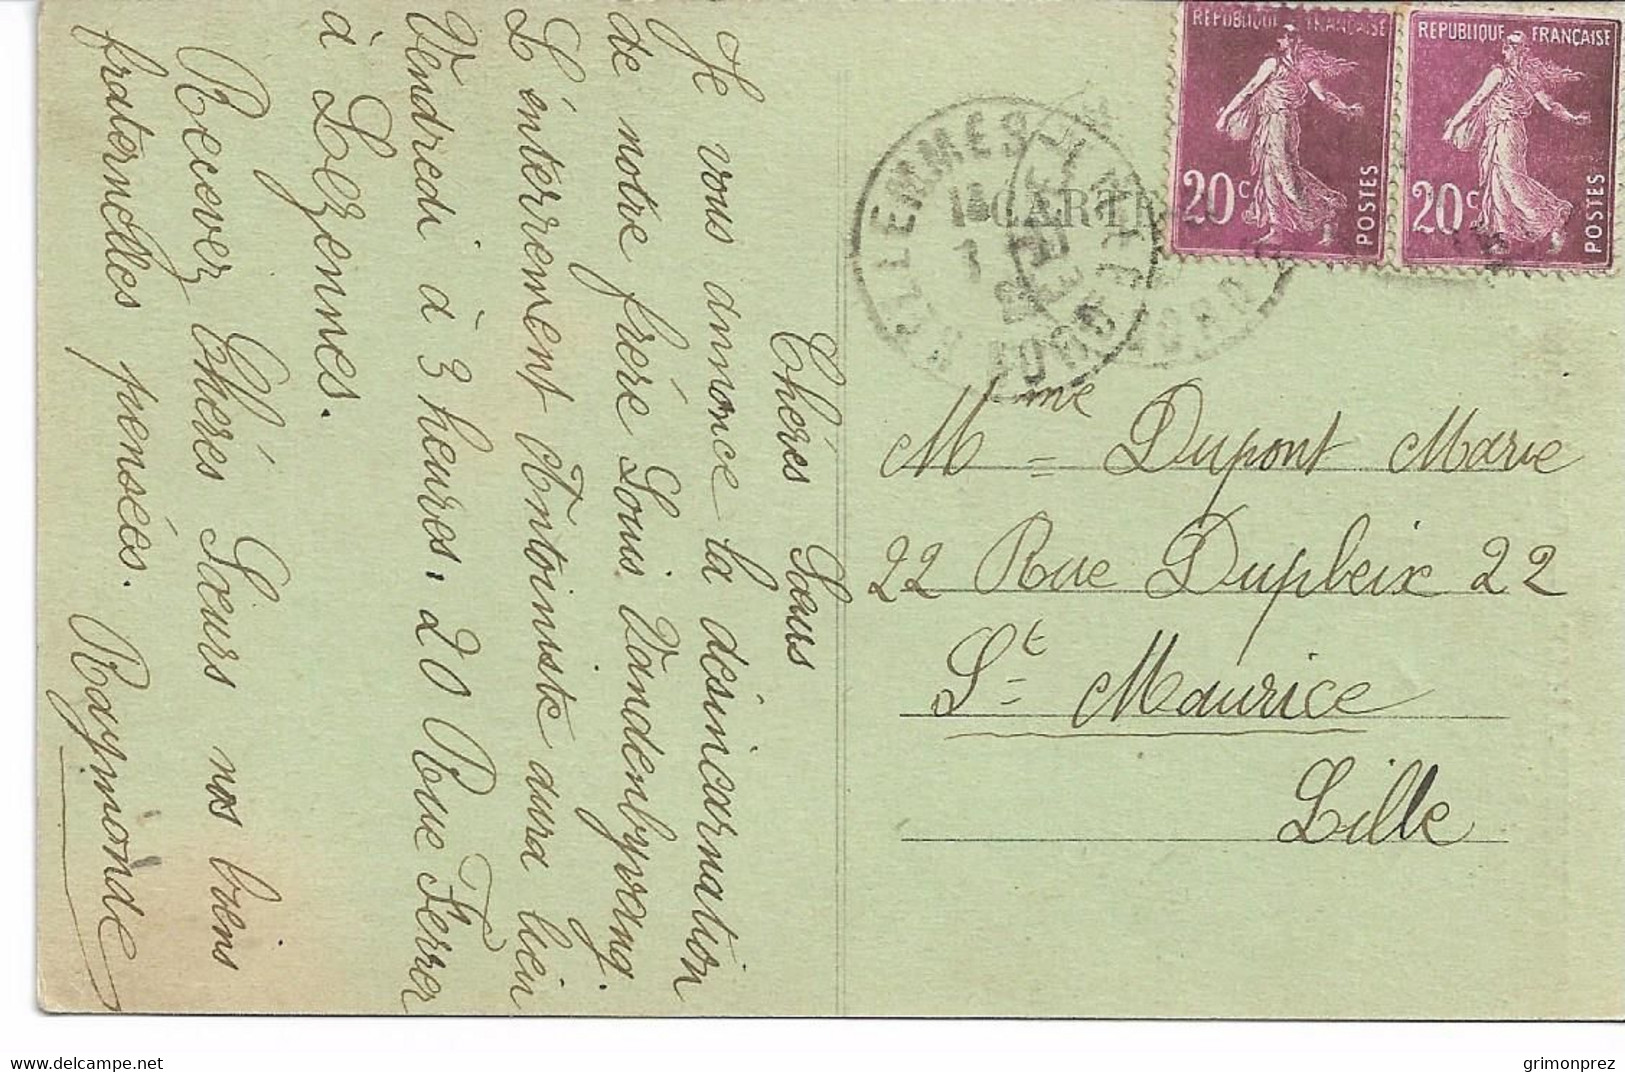 Chéres Sœurs
Je vous annonce la désincarnation
de notre frère Louis Vandenbyvang.
L'énterrement Antoiniste aura lieu
Vendredi à 3 heures. 20 Rue Ferrer
à Lezennes.
Recevez Chéres Sœurs nos biens
fraternelles pensées. Raymonde
REPUBLIQUE FRANÇAISE
20c
POSTES
REPUBLIQUE FRANÇAISE
20c
POSTES
HELLEMMES-LILLE
NORD
CARTE
Mme = Dupont Marie
22 Rue Dupleix 22
St = Maurice
Lille
www.delcampe.net
grimonprez